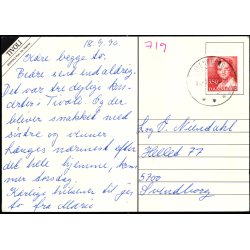 TIVOLI
18.9.90.
719
Kære begge to.
Bedre sent end aldrig.
Det var tre dejlige kon-
certer i Tivoli. Og der
bliver snakket med
søstre og venner
hænges nærmest efter
det hele hjemme, kom-
mer torsdag.
Kærlige hilsener til jer
to fra Marie
E. Nikedahl
Hellet 77
5700
Svendborg